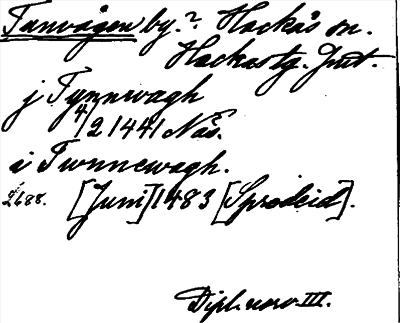 Tanvågen by.? Hackås sn.
Hackåstg. Jmt.
j Tynnwagh
4/2 1441 Näs.
i Twnnewagh.
[Juni] 1483 [Sprodeid].
Dipl. norv. III.